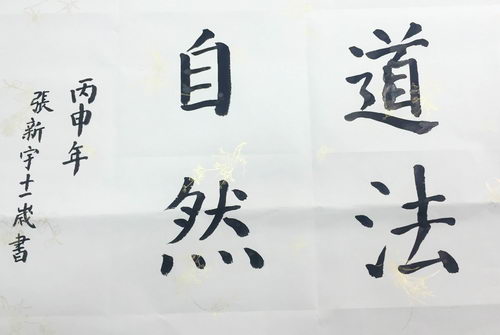 道法
自然
丙申年
張新宇十一歲書